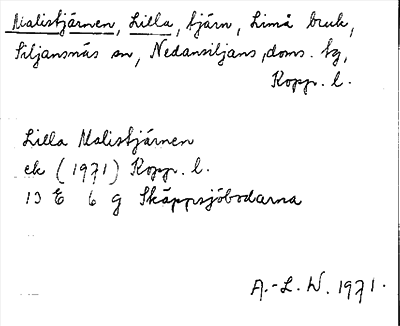 Malistjärnen, Lilla, tjärn, Limå bruk,
Siljansnäs sn, Nedansiljans doms. tg,
Kopp. l.
Lilla Malistjärnen
ek (1971) Kopp. l.
13 E 6 g Skäppsjöbodarna
A.-L. W. 1971.